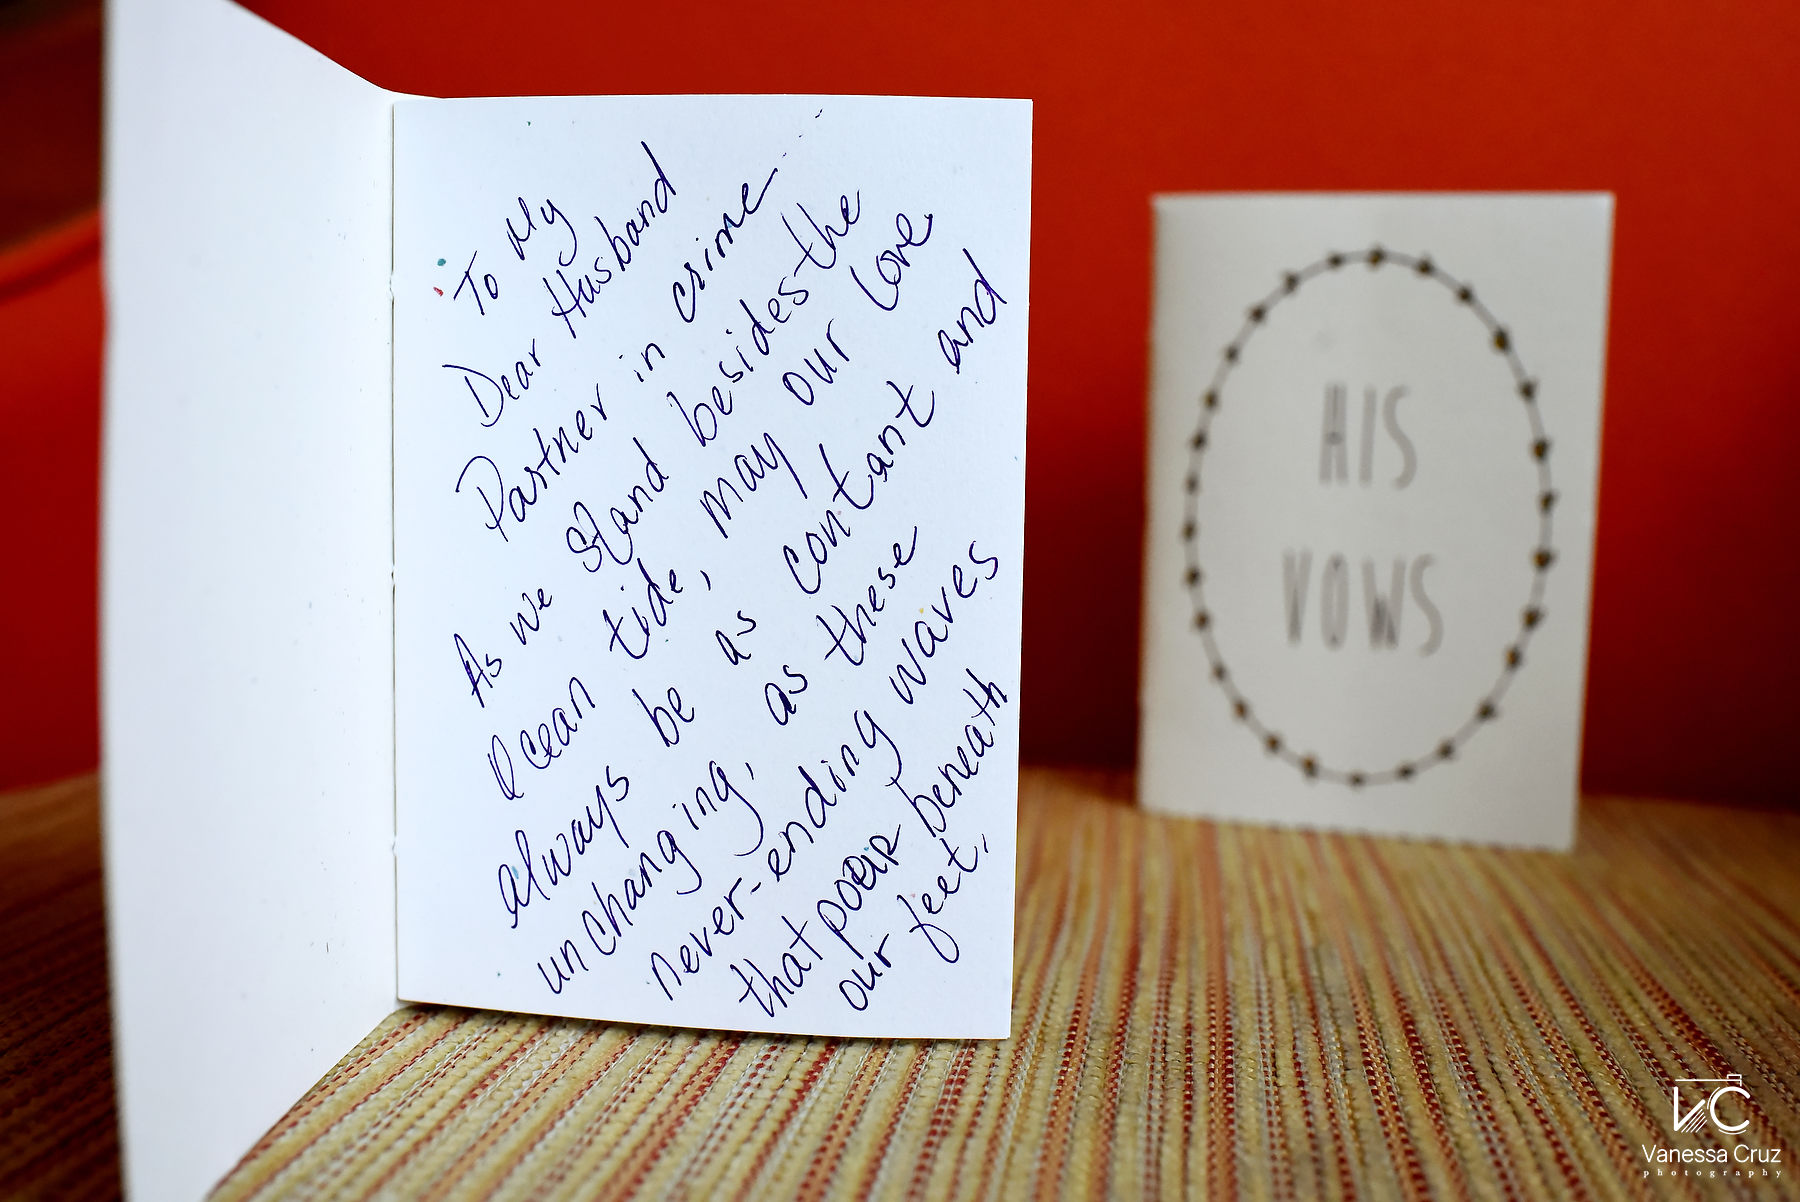 To My
Dear Husband
Partner in crime
As we stand besides the
Ocean tide, may our love
always be as contant and
unchanging, as these
never-ending waves
that pour beneath
our feet.
HIS
VOWS
VC
Vanessa Cruz
photography